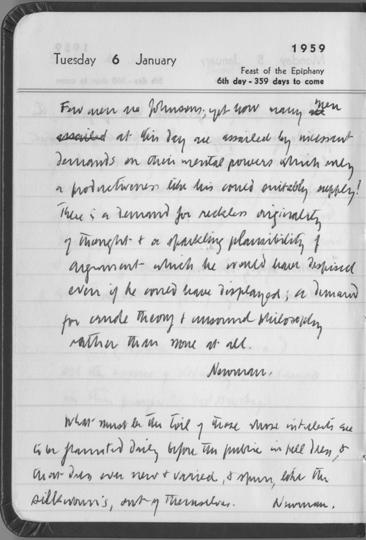 1959
Tuesday 6 January
Feast of the Epiphany
6th day - 359 days to come
Few men are Johnsons; yet how many men
assailed at this day are assailed by incessant
demands on their mental powers which only
a productiveness like his could suitably supply!
There is a demand for reckless originality
of thought & a sparkling plausibility of
argument which he would have despised
even if he could have displayed; a demand
for crude theory & unsound philosophy
rather than none at all.
Newman.
What must be the toil of those whose intellects are
to be flaunted daily before the public in full dress, &
that dress ever new & varied, & spun, like the
silkworm's, out of themselves. Newman.